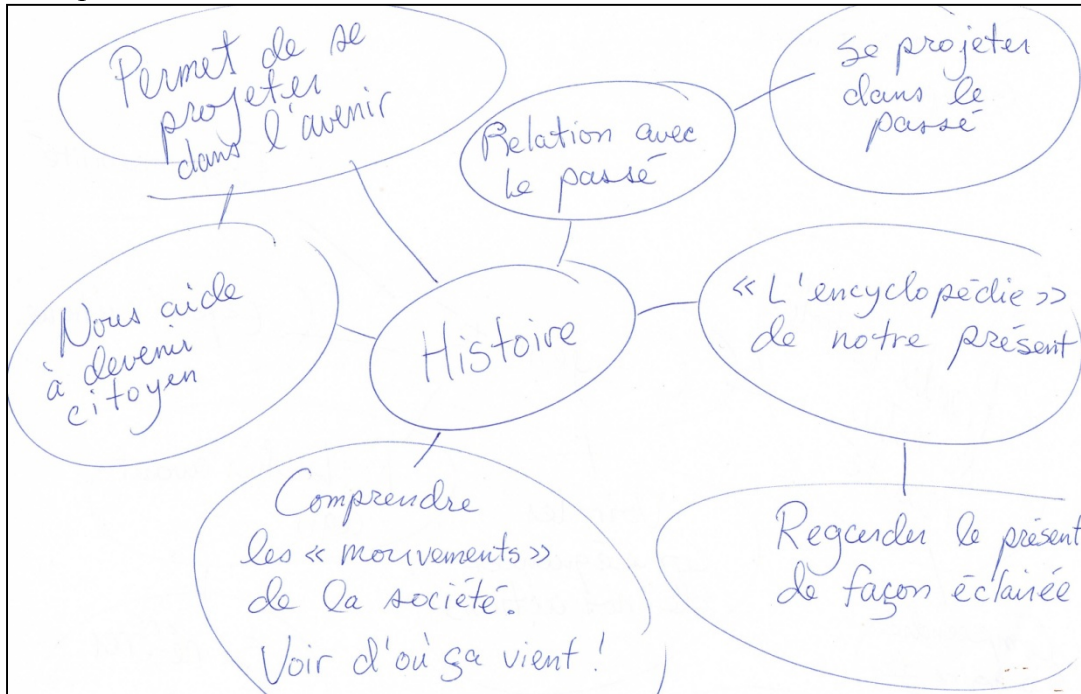 Permet de se
projeter
dans l'avenir
Relation avec
le passé
Se projeter
dans le
passé
Nous aide
à devenir
citoyen
Histoire
« L'encyclopédie »
de notre présent
Comprendre
les « mouvements »
de la société.
Voir d'où ça vient !
Regarder le présent
de façon éclairée